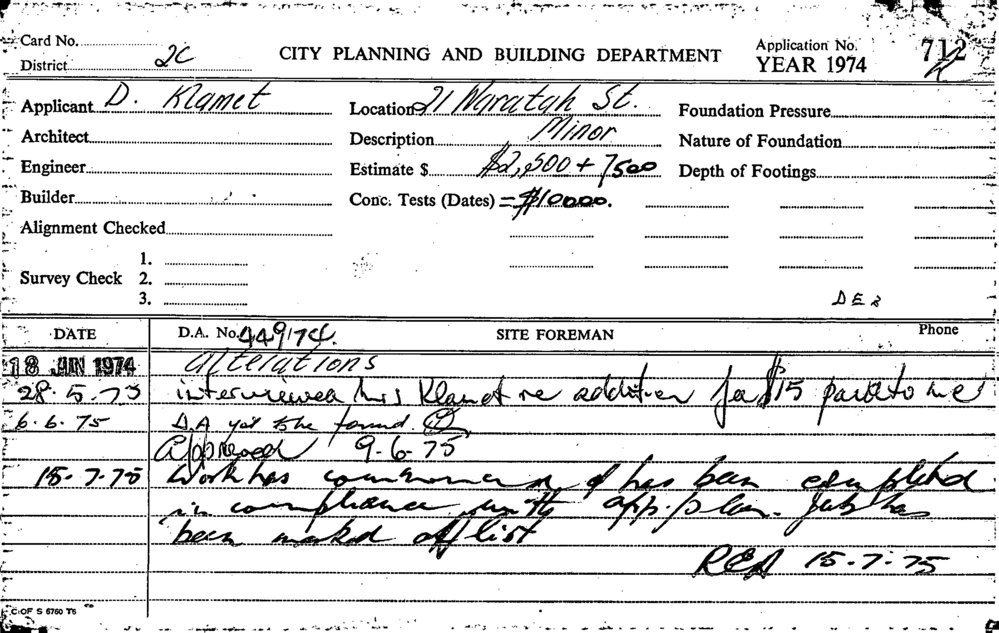 Card No.
District 2C
CITY PLANNING AND BUILDING DEPARTMENT
Application No. 712
YEAR 1974
Applicant D. Klamet
Location 21 Waratah St.
Foundation Pressure
Architect
Description Minor
Nature of Foundation
Engineer
Estimate $ $2,500 + 7500
Depth of Footings
Builder
Conc. Tests (Dates) = $10000.
Alignment Checked
Survey Check
1.
2.
3.
DATE
D.A. No. 449/74
SITE FOREMAN
Phone
18 JUN 1974 alterations
28.5.75 interviewed Mrs Klamet re addition $15 paid to me
6.6.75 D.A yet to be found.
Approved 9-6-75
15.7.75 Work has commenced & has been completed
in compliance with app. plan. Job has
been marked off list
15.7.75
C. OF S 6760 T6